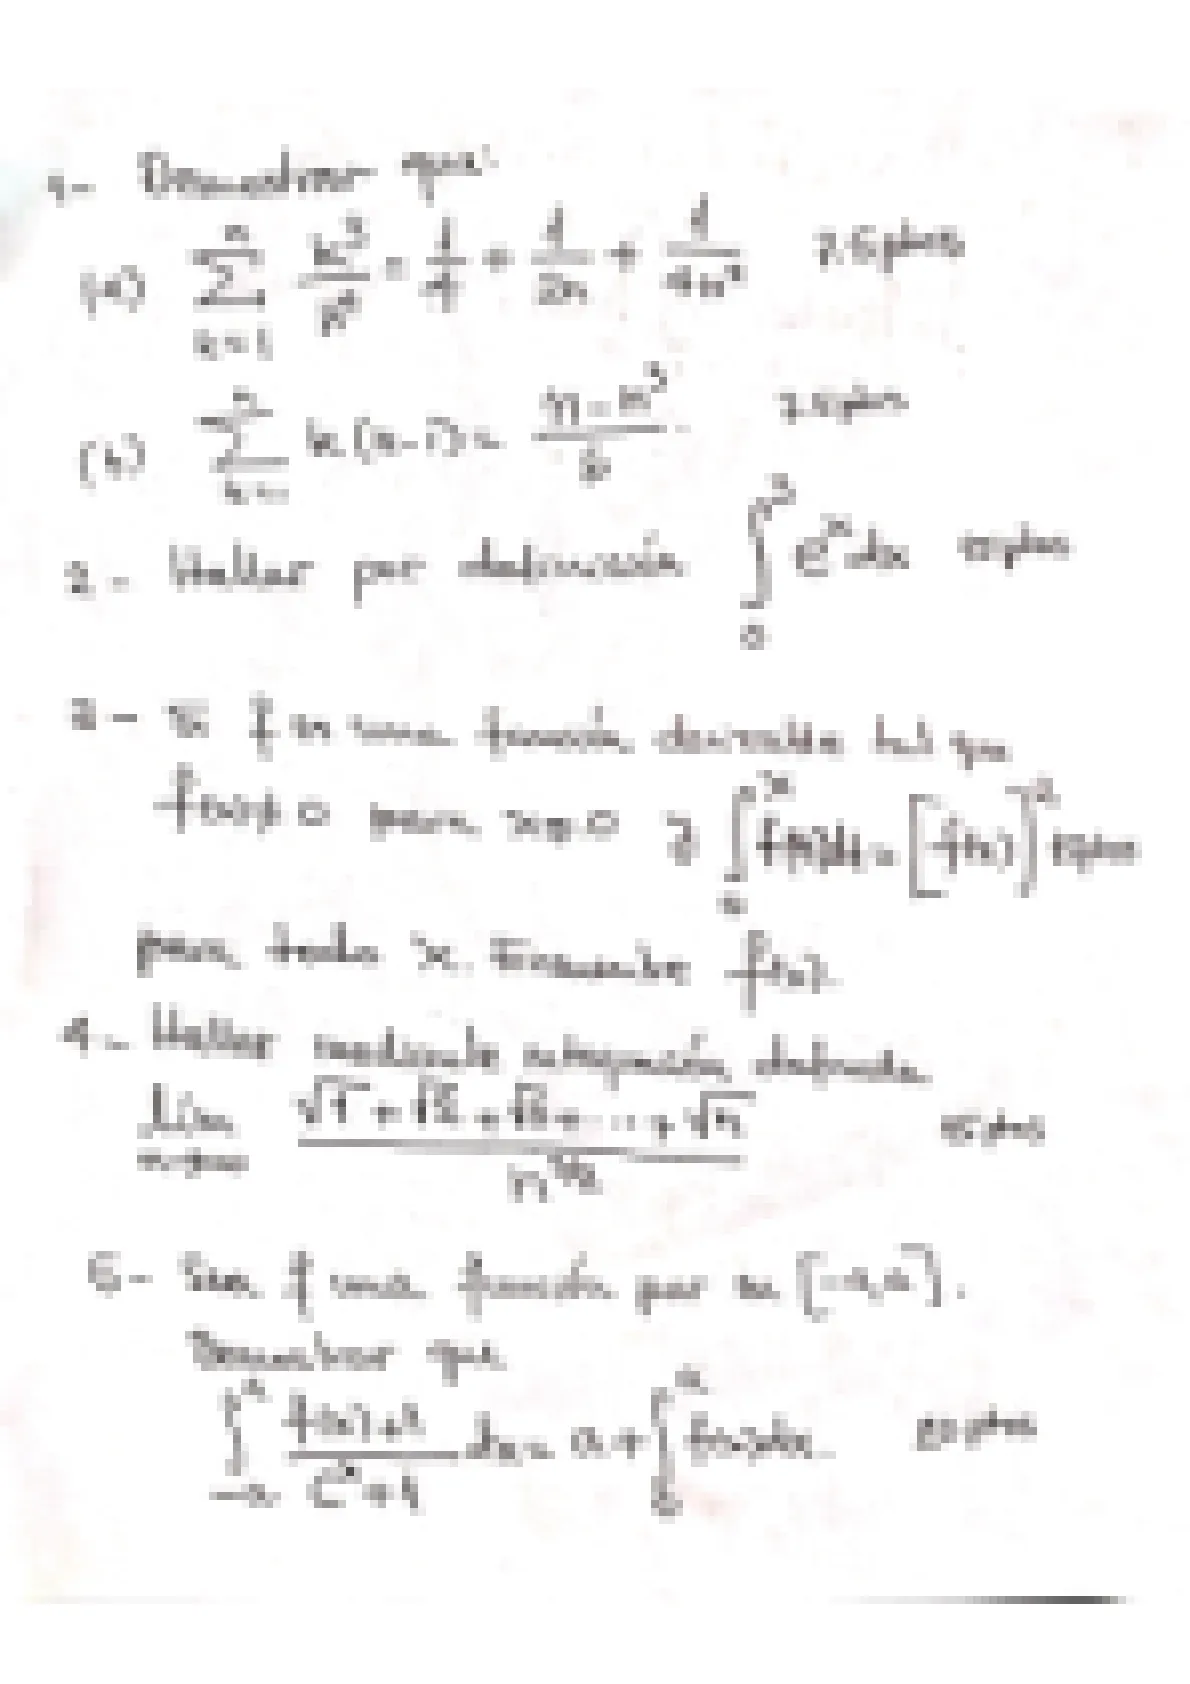 1- Demostrar que:
(a) \sum_{k=1}^{n} \frac{k^3}{n^4} = \frac{1}{4} + \frac{1}{2n} + \frac{1}{4n^2} 7.5 ptos
(b) \sum_{k=1}^{n} k(k-n) = \frac{n-n^3}{6} 7.5 ptos
2- Hallar por definición \int_0^3 e^x dx ptos
3- Si f es una función derivable tal que
f(x) ≠ 0 para x ≠ 0 y \int_0^x f(t)dt = [f(x)]^2 ptos
para todo x. Encuentre f(x)
4- Hallar mediante integración definida
\lim_{n→∞} \frac{\sqrt{1} + \sqrt{2} + \sqrt{3} + ... + \sqrt{n}}{n^{3/2}} 15 ptos
5- Sea f una función par en [-a,a].
Demostrar que
\int_{-a}^{a} \frac{f(x)+1}{e^x+1} dx = a + \int_0^a f(x)dx. ptos